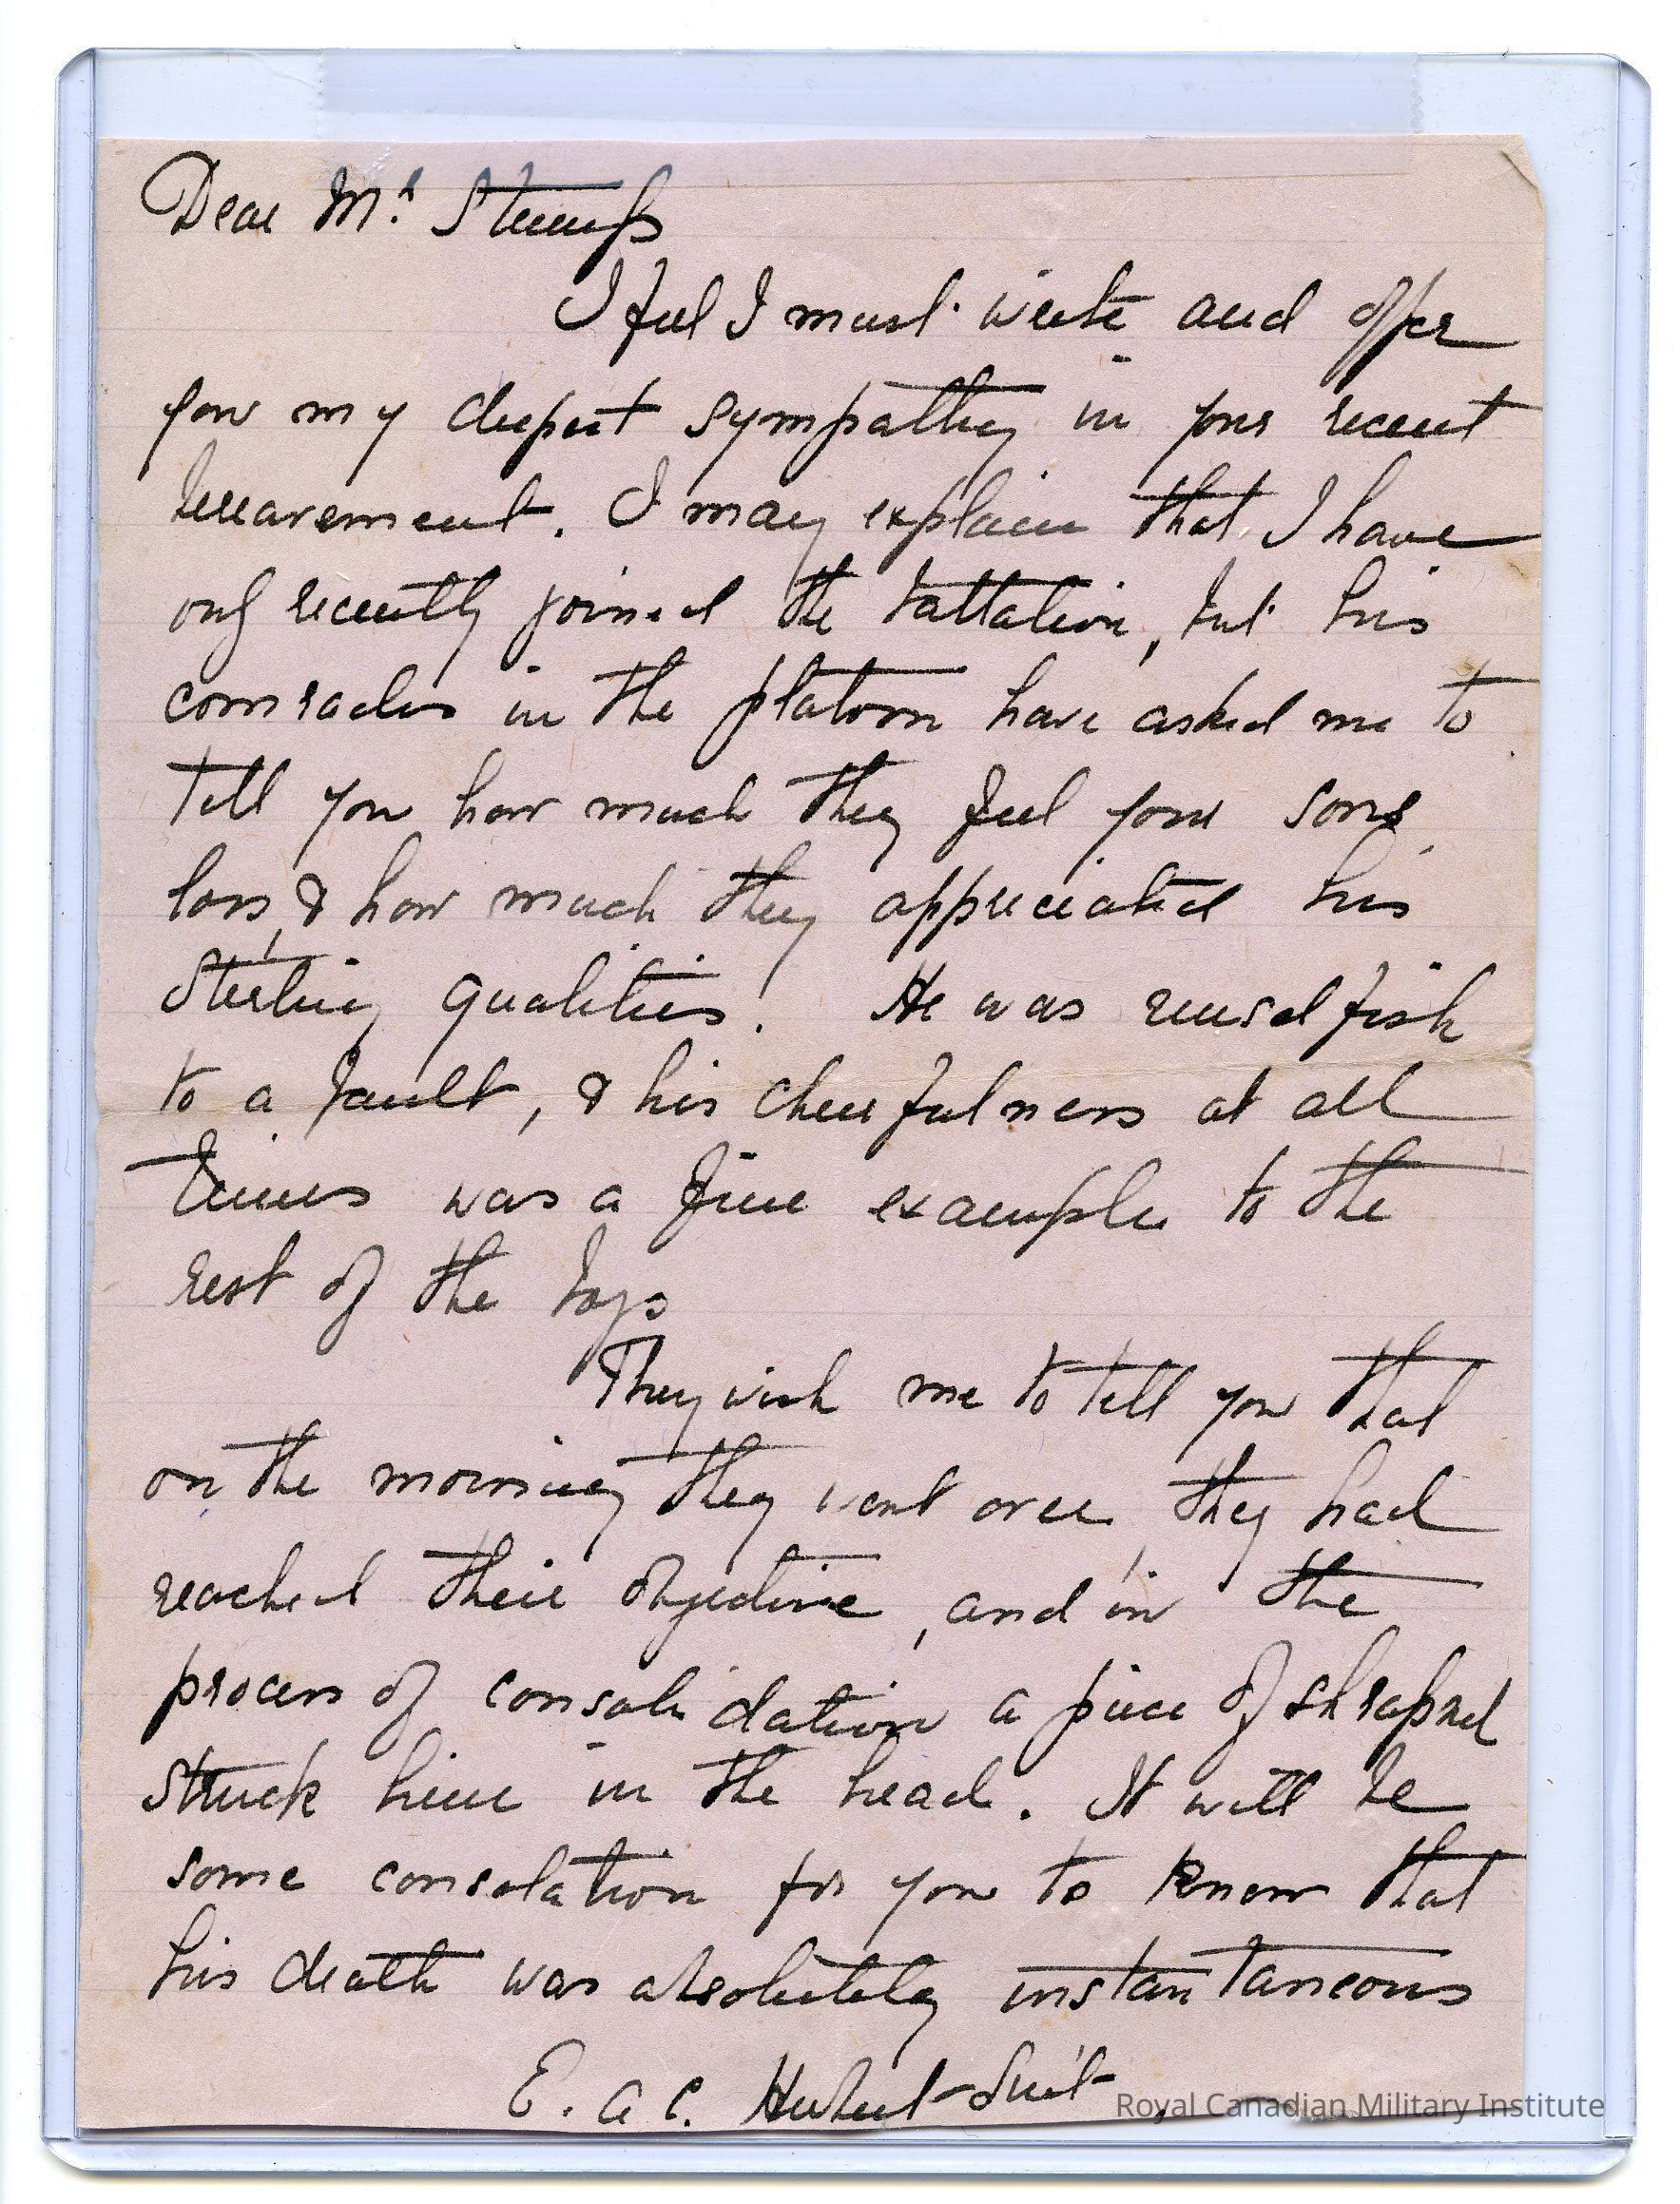 Dear Mrs
I feel I must write and offer
you my deepest sympathy in your recent
bereavement. I may explain that I have
only recently joined the battalion, but his
comrades in the platoon have asked me to
tell you how much they feel your sons
loss, & how much they appreciated his
sterling qualities. He was unselfish
to a fault, & his cheerfulness at all
times was a fine example to the
rest of the boys
They wish me to tell you that
on the morning they went over, they had
reached their objective, and in the
process of consolidation a piece of shrapnel
struck him in the head. It will be
some consolation for you to know that
his death was absolutely instantaneous
E. A. C.
Royal Canadian Military Institute